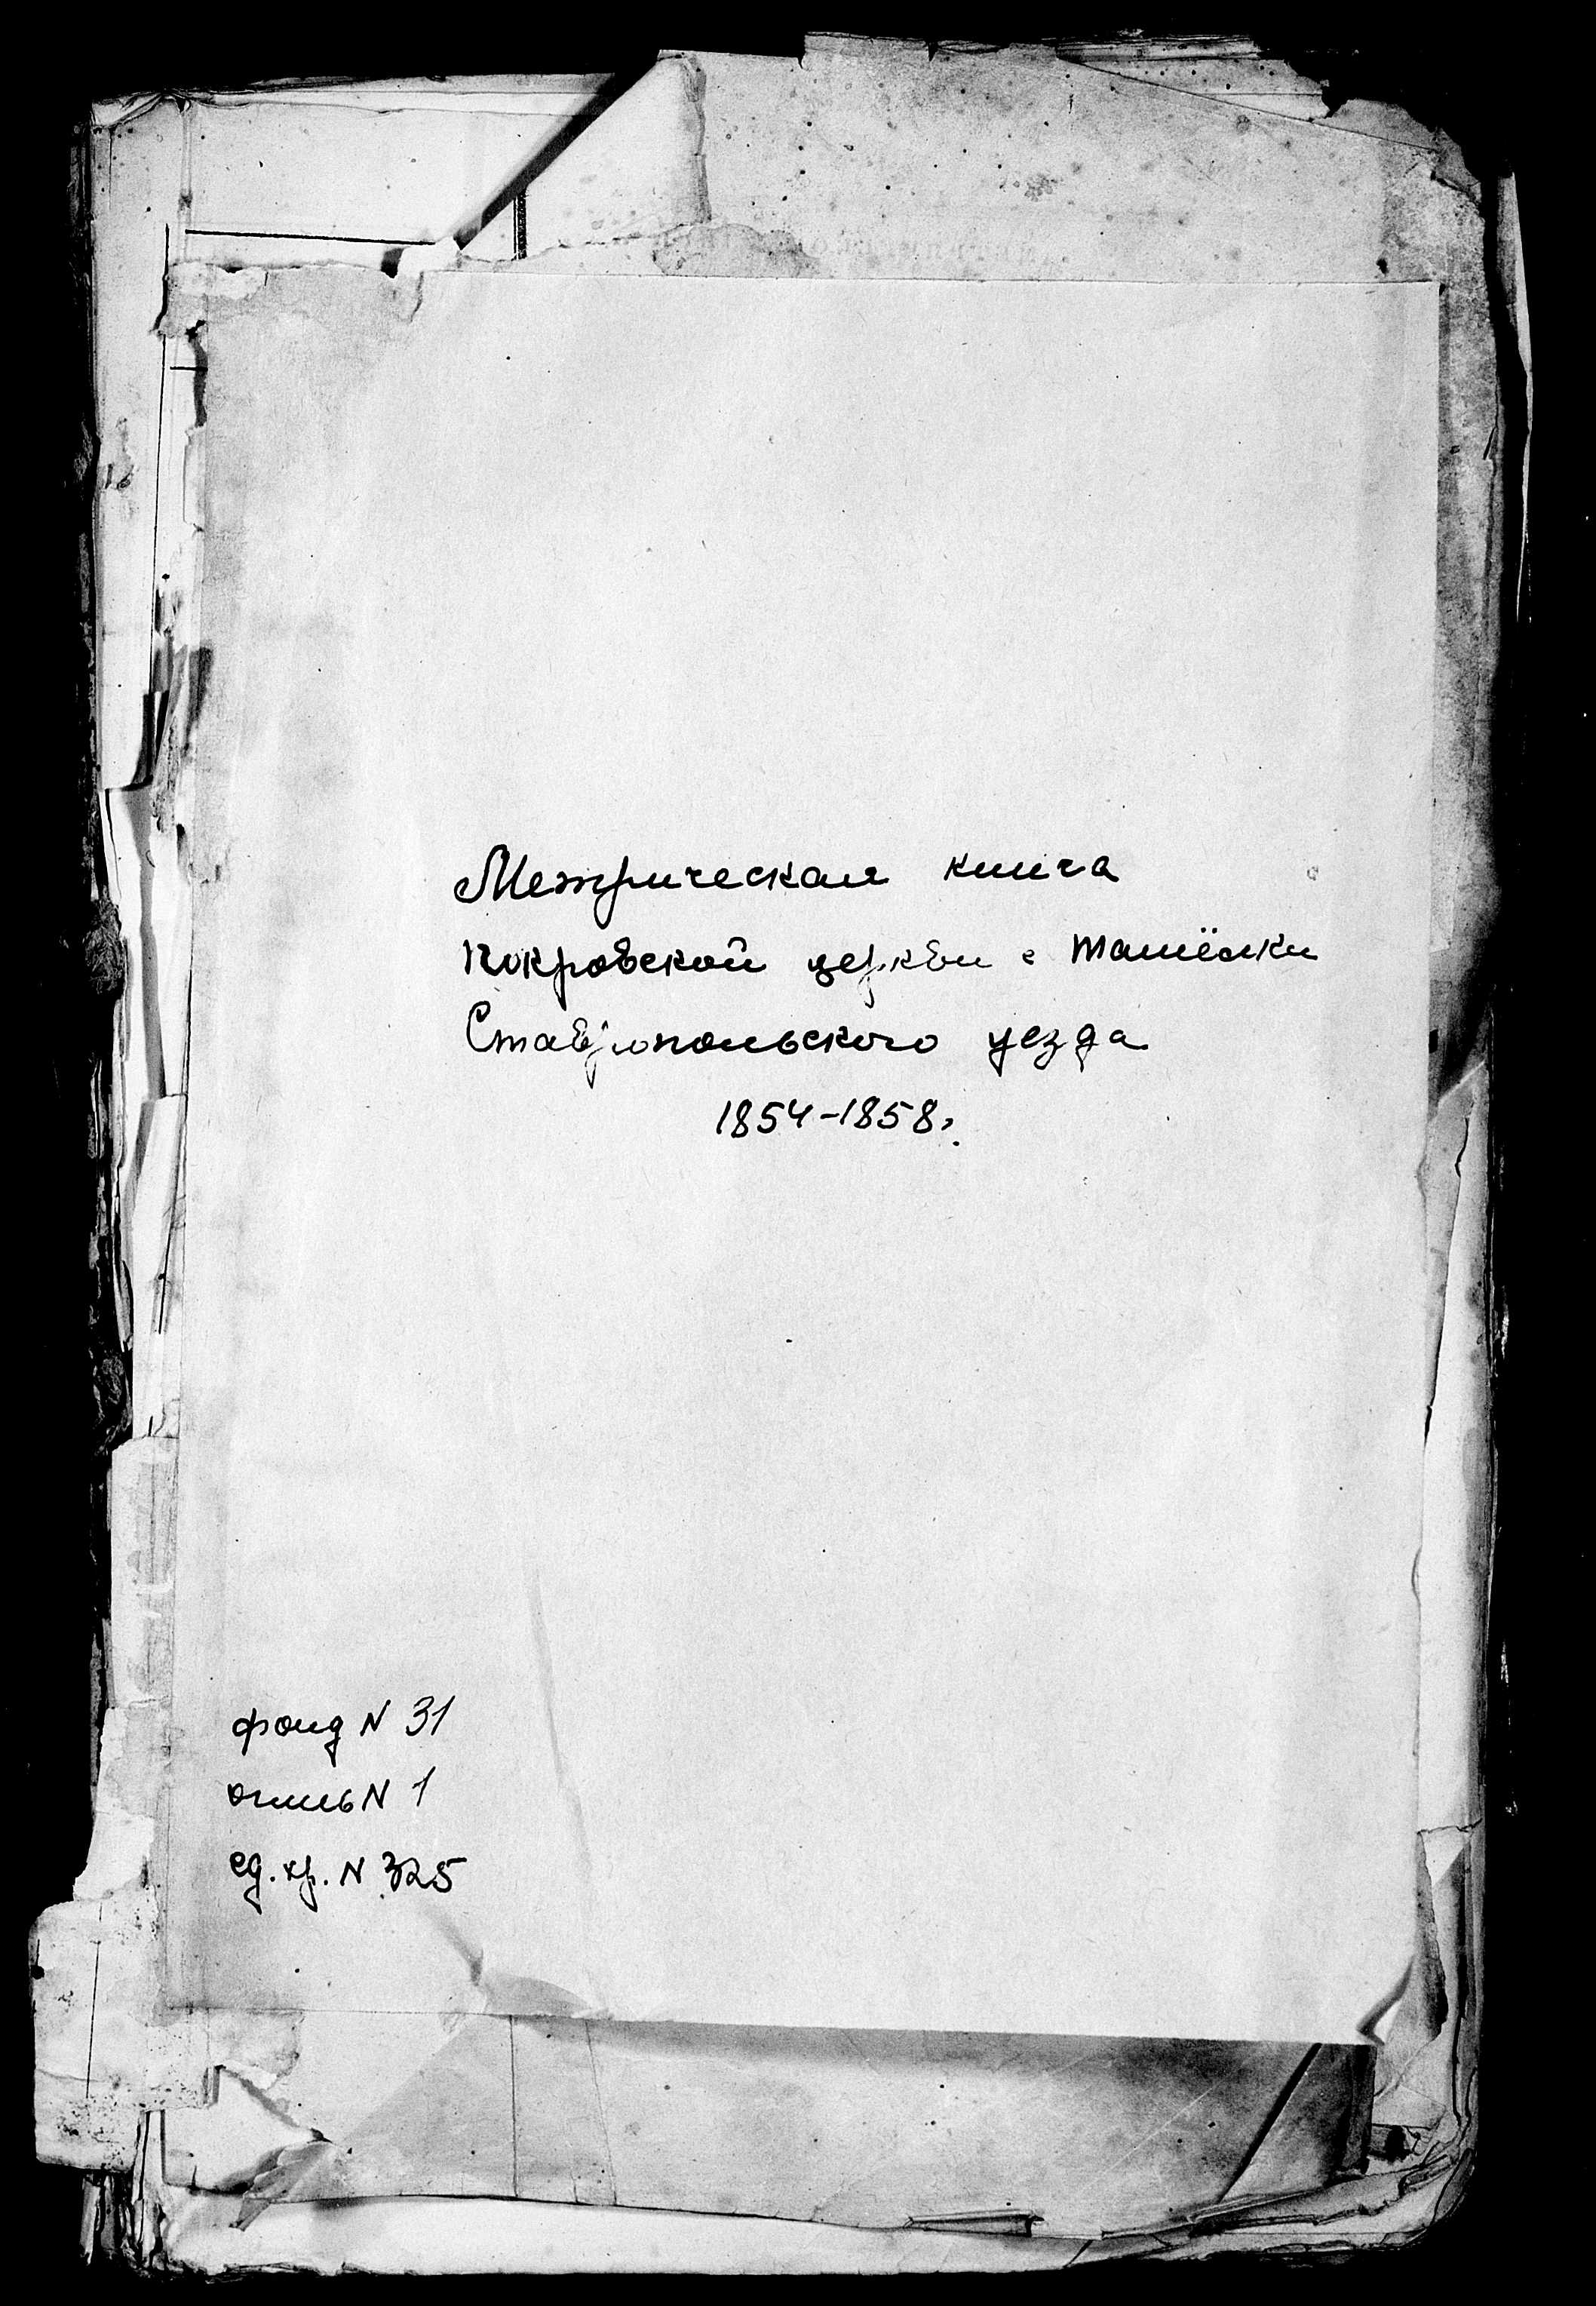 Метрическая книга
Покровской церкви с Ташёлки
Ставропольского уезда
1854-1858г.
фонд N 31
опись N 1
ед. хр. N 325